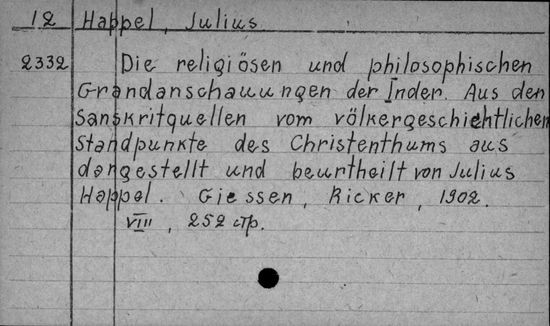 12 Happel, Julius.
2332 Die religiösen und philosophischen
Grandanschauungen der Inder. Aus den
Sanskritquellen vom völkergeschichtlichen
Standpunkte des Christenthums aus
dargestellt und beurtheilt von Julius
Happel. Giessen, Ricker, 1902.
VIII, 252 стр.